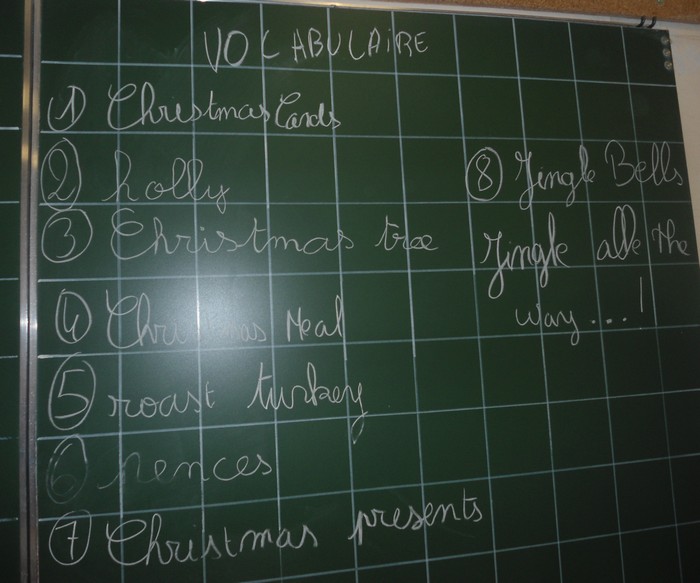 VOCABULAIRE
① Christmas Cards
② holly
③ Christmas tree
④ Christmas Meal
⑤ roast turkey
⑥
⑦ Christmas presents
⑧ Jingle Bells
Jingle all the
way....!